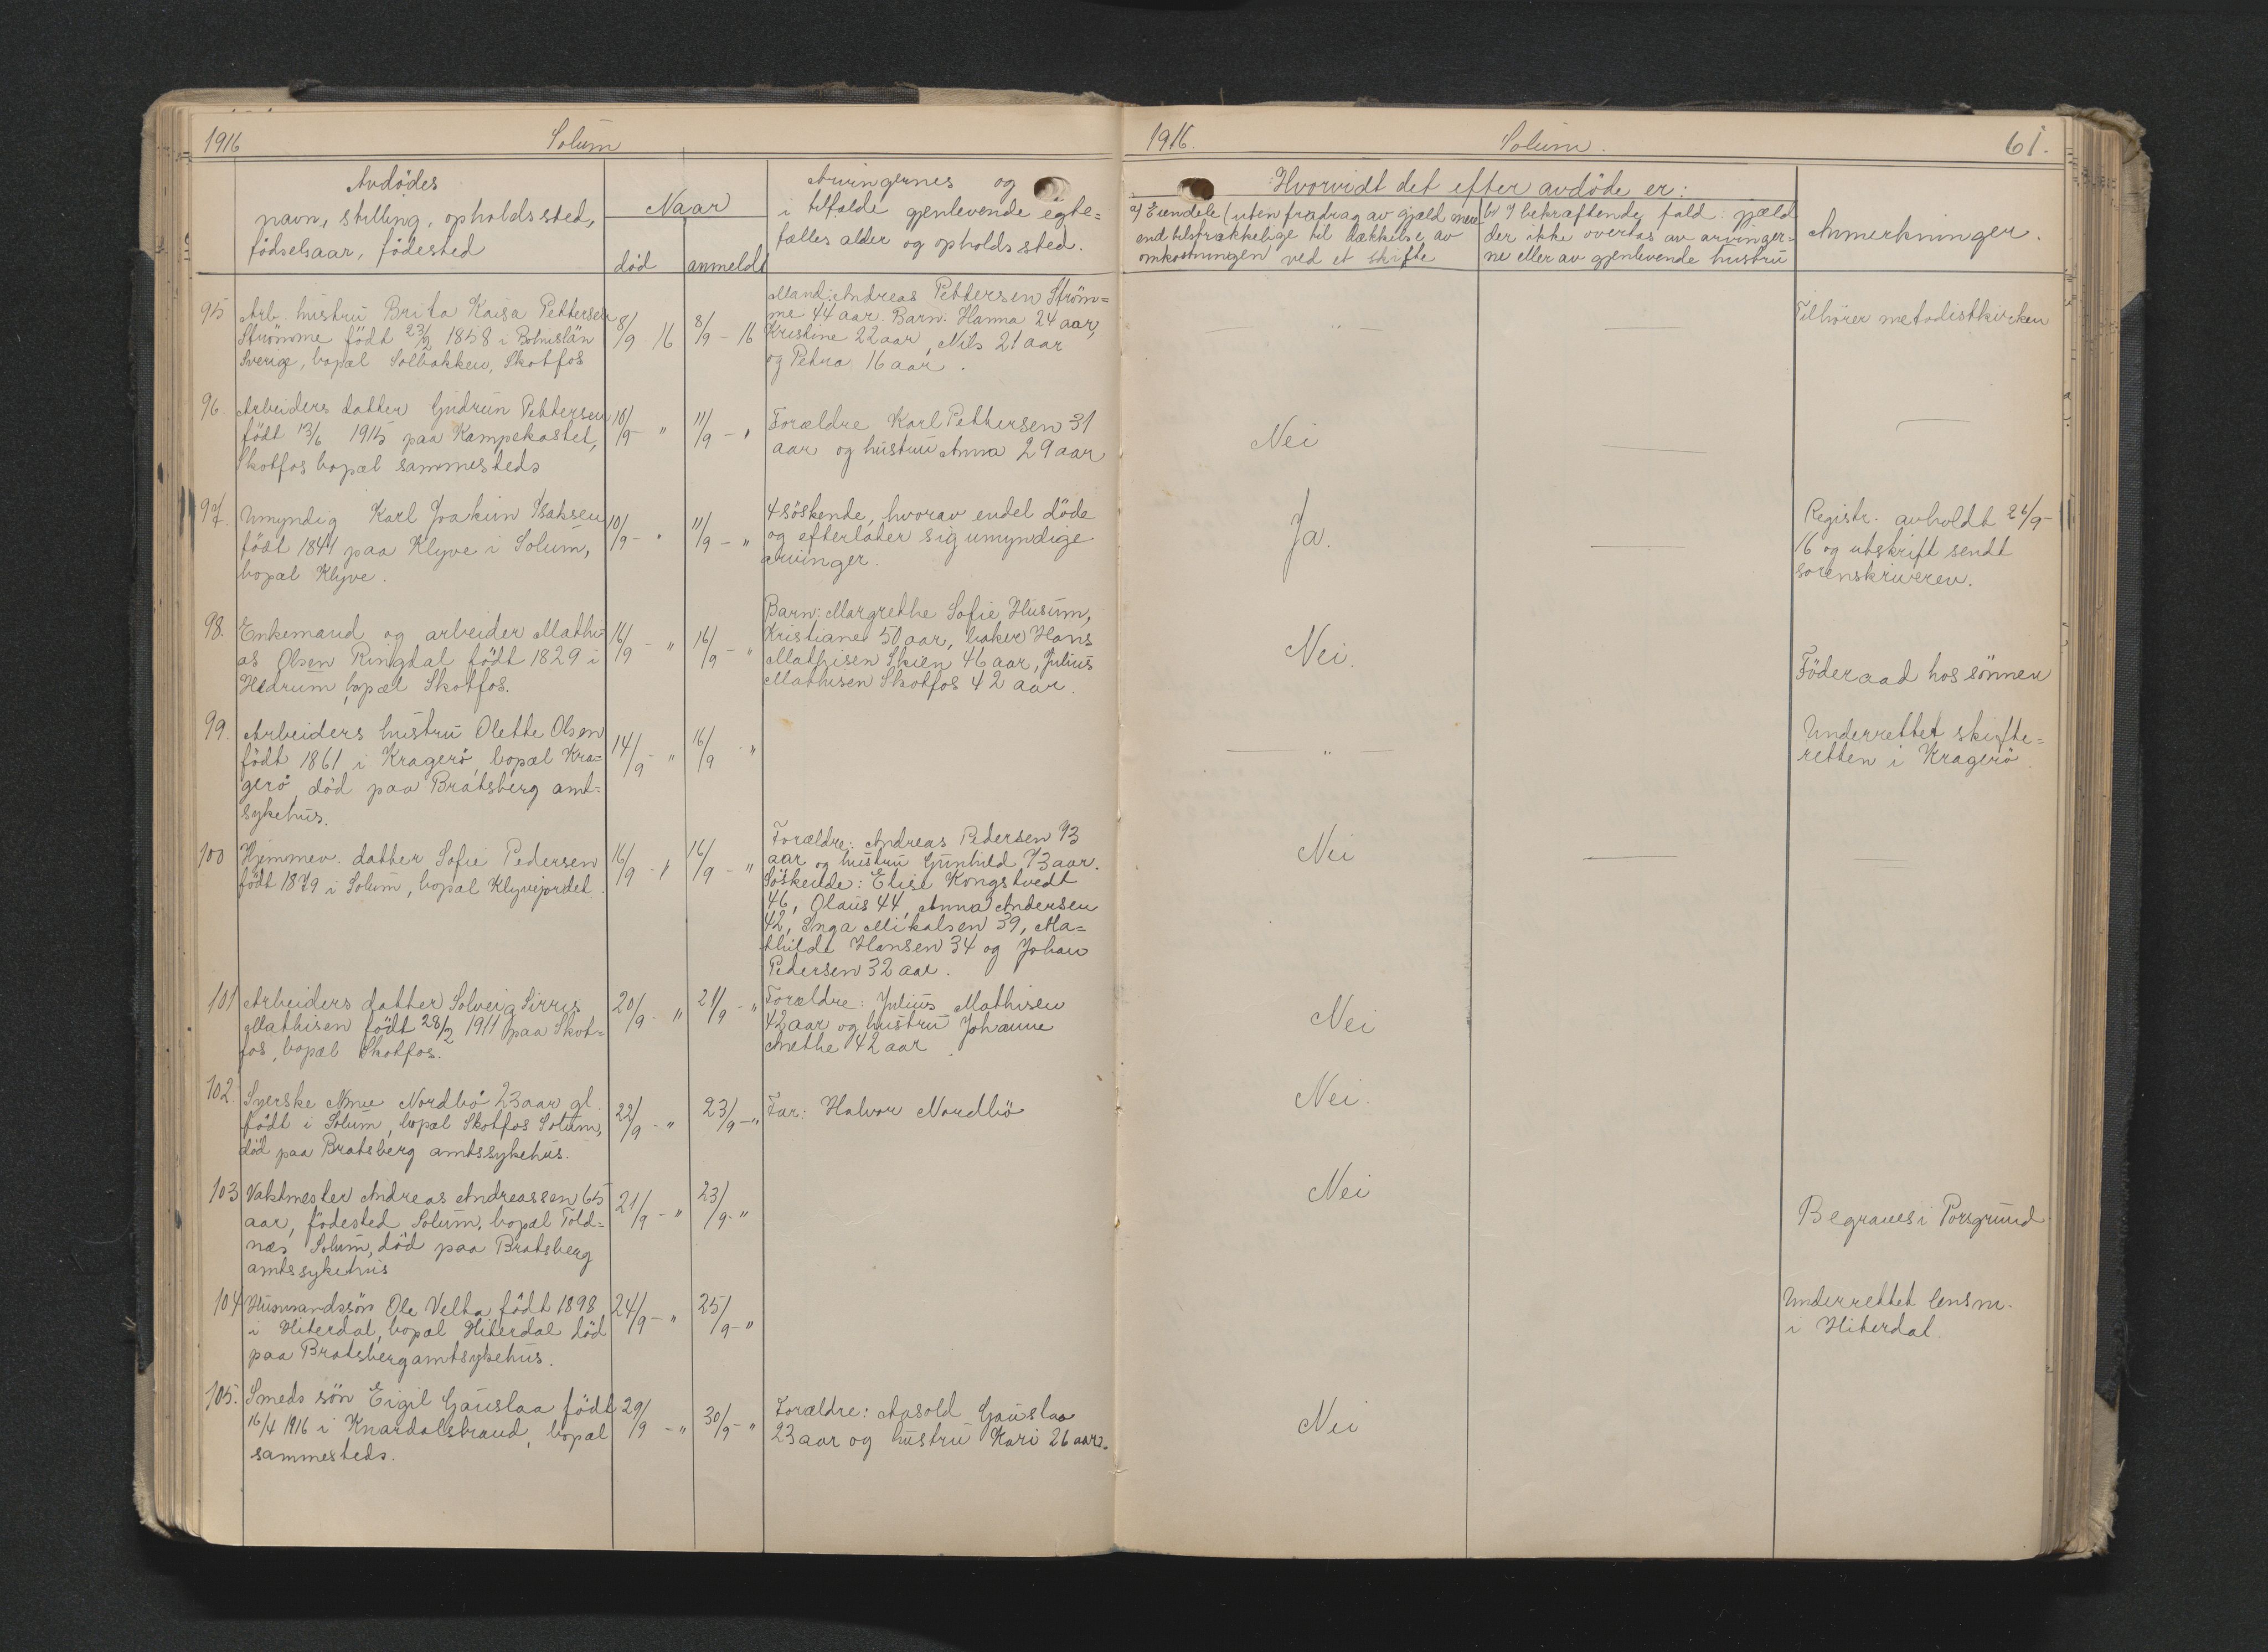 1916
Solum
Avdödes
navn, stilling, opholdssted,
födselsaar, födested
Naar
död
anmeldt
Arvingernes og
i tilfælde gjenlevende egte=
fælles alder og opholdssted.
95 Arb. hustru Brita Kaisa Pettersen
Strömme födt 23/2 1858 i Bohuslän
Sverige, bopæl Solbakken, Skotfos
8/9 16
8/9 - 16
Mand: Andreas Pettersen Ström=
me 44 aar. Barn: Hanna 24 aar,
Kristine 22 aar, Nils 21 aar
og Petra 16 aar.
96. Arbeiders datter Gudrun Pettersen
födt 13/6 1915 paa Kampekastet,
Skotfos bopæl sammesteds
10/9 - "
11/9 - "
Forældre Karl Pettersen 31
aar og hustru Anna 29 aar
97. Umyndig Karl Joakim Isaksen
födt 1841 paa Klyve i Solum,
bopæl Klyve.
10/9 - "
11/9 - "
4 söskende, hvorav endel döde
og efterlater sig umyndige
arvinger.
98. Enkemand og arbeider Mathi=
as Olsen Ringdal födt 1829 i
Hedrum, bopæl Skotfos.
16/9 - "
16/9 - "
Barn: Margrethe Sofie Husum,
Kristiane 50 aar, baker Hans
Mathisen Skien 46 aar, Julius
Mathisen Skotfos 42 aar.
99. Arbeiders hustru Olette Olsen
födt 1861 i Kragerö, bopæl Kra=
gerö, död paa Bratsberg amt=
sykehus.
14/9 - "
16/9 "
100 Hjemmev. datter Sofie Pedersen
födt 1879 i Solum, bopæl Klyvejordet.
16/9 - "
16/9 - "
Forældre: Andreas Pedersen 73
aar og hustru Gunhild 73 aar.
Söskende: Elise Kongstvedt
46, Olaus 44, Anna Andersen
42, Inga Mikalsen 39, Ma=
thilde Hansen 34 og Johan
Pedersen 32 aar.
101 Arbeiders datter Solveig Sirris
Mathisen födt 28/2 1911 paa Skot=
fos, bopæl Skotfos.
20/9 - "
21/9 - "
Forældre: Julius Mathisen
42 aar og hustru Johanne
Anethe 42 aar.
102. Syerske Anne Nordbö 23 aar gl.
födt i Solum, bopæl Skotfos Solum,
död paa Bratsberg amtssykehus.
22/9 - "
23/9 - "
Far: Halvor Nordbö
103 Vaktmester Andreas Andreassen 65
aar, födested Solum, bopæl Told=
næs Solum, död paa Bratsberg
amtssykehus
21/9 - "
23/9 - "
104 Husmandssön Ole Velta födt 1898
i Hiterdal, bopæl Hiterdal död
paa Bratsberg amtsykehus.
24/9 - "
25/9 - "
105. Smeds sön Eigil Gauslaa födt
16/4 1916 i Knardalstrand, bopæl
sammesteds.
29/9 - "
30/9 - "
Forældre: Aasold Gauslaa
23 aar og hustru Kari 26 aar.
1916.
Solum.
61.
Hvorvidt det efter avdöde er:
a) Eiendele (uten fradrag av gjæld mere
end tilstrækkelige til dækkelse av
omkostningen ved et skifte
b) I bekræftende fald: gjæld
der ikke overtas av arvinger=
ne eller av gjenlevende hustru
Anmerkninger.
" —
—
Tilhörer metodistkirken
Nei
—
—
Ja.
—
Registr. avholdt 26/9-
16 og utskrift sendt
sorenskriveren.
Nei.
Föderaad hos sönnen
— " —
—
Underrettet skifte=
retten i Kragerö
Nei
—
—
Nei
Nei.
Nei
Begraves i Porsgrund
Underrettet lensm.
i Hiterdal.
Nei